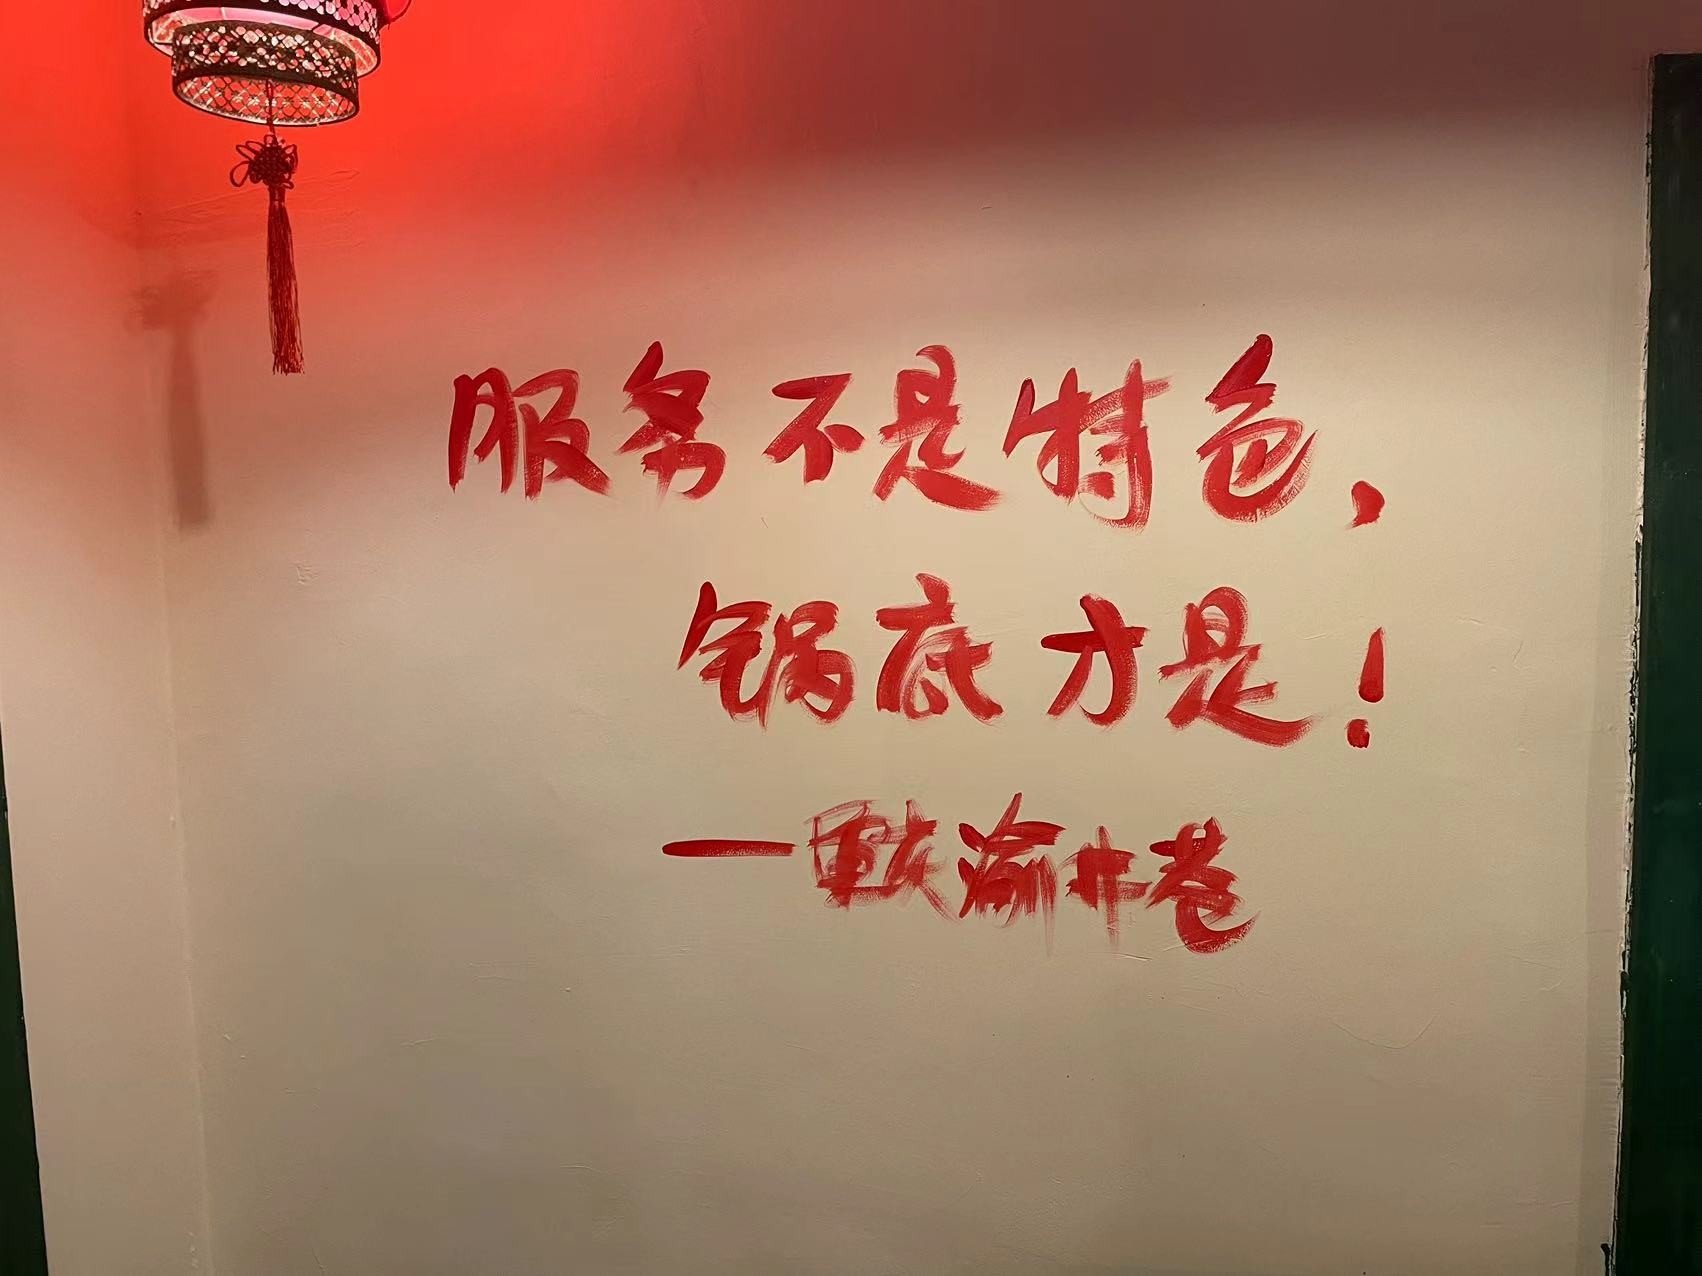 服务不是特色,
锅底才是!
一重庆渝井巷